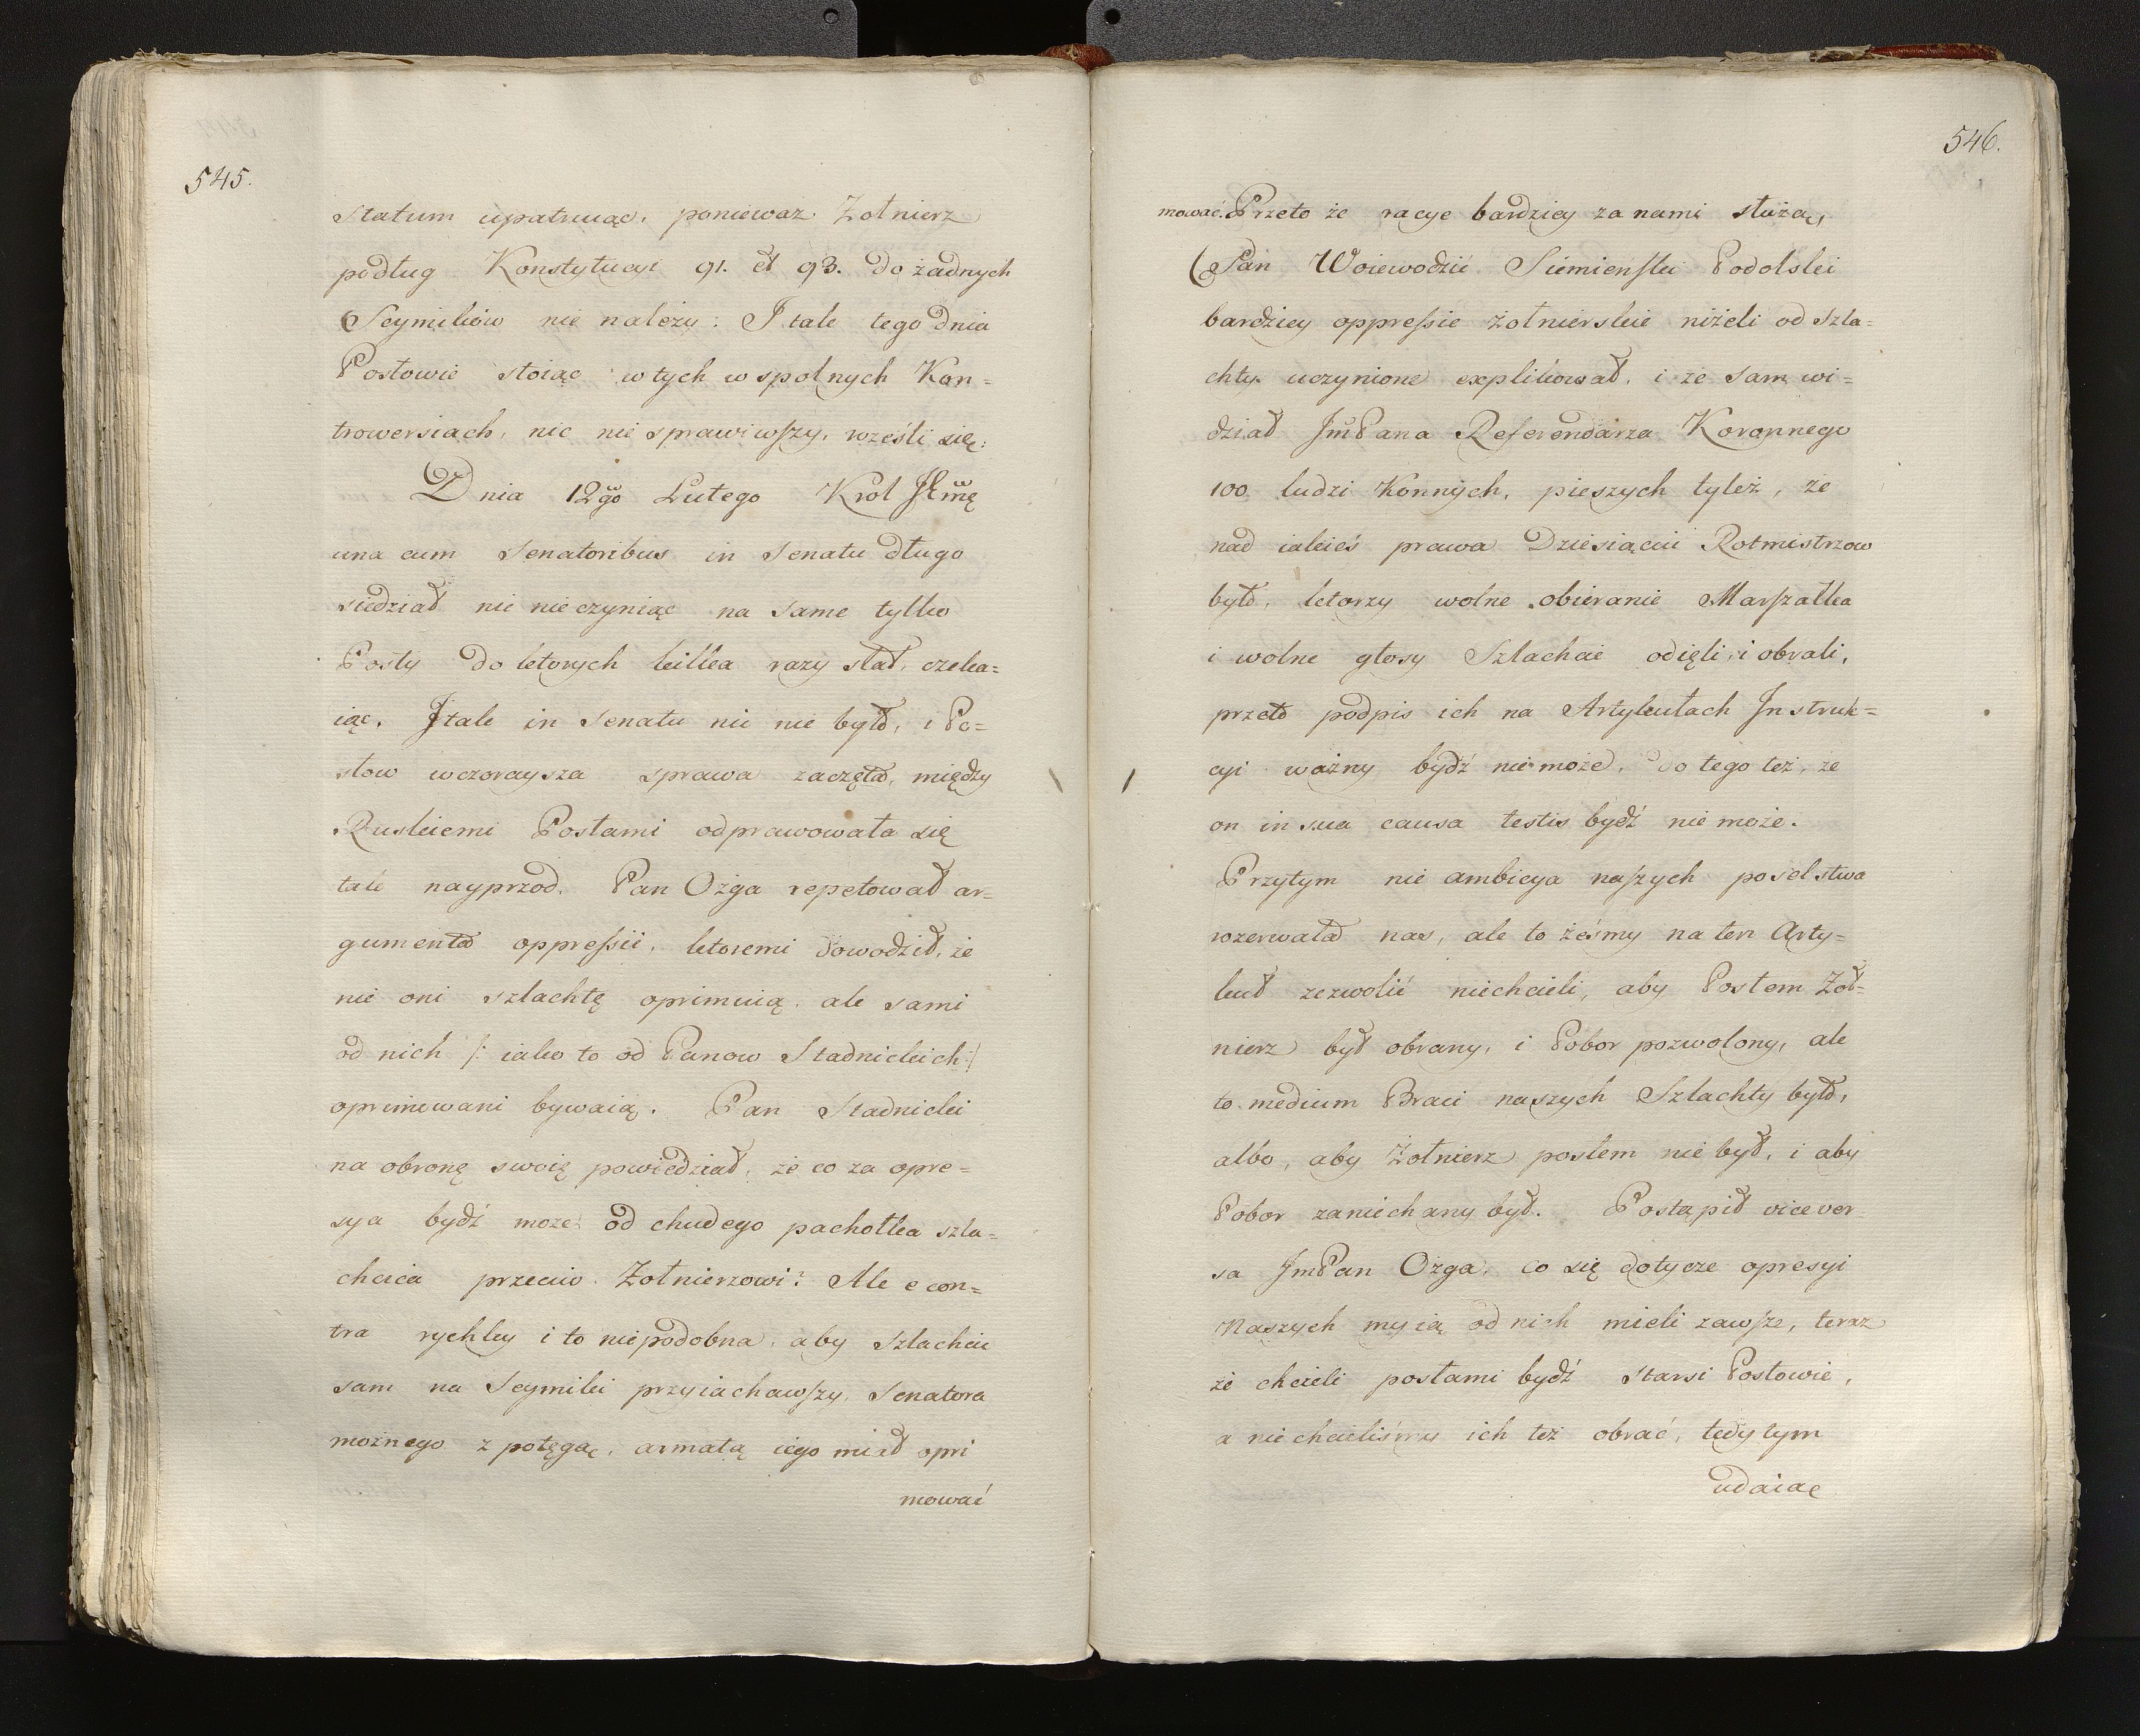 545.
statum upatruiąc, ponieważ Żołnierz
podług Konstytucyi 91. et 93. do żadnych
Seymików nie należy: I tak tego dnia
Posłowie stoiąc w tych wspolnych Kon=
trowersiach, nic nie sprawiwszy, rześli się:
Dnia 12go Lutego Krol JKmę
una cum Senatoribus in Senatu długo
siedział nic nie czyniąc na same tylko
Posły do ktorych kilka razy słał, czeka=
iąc. I tak in Senatu nic nie było, i Po=
słow wczoraysza sprawa zaczęta, między
Ruskiemi Posłami odprawowała się
tak nayprzod. Pan Ożga repetował ar=
gumenta oppressii, ktoremi dowodził, że
nie oni szlachtę oprimuią ale sami
od nich /: iako to od Panow Stadnickich :/
oprimowani bywaią. Pan Stadnicki
na obronę swoię powiedział, że co za opre=
sya bydź może od chudego pachołka szla=
chcica przeciw Żołnierzowi? Ale e con=
tra rychley i to niepodobna, aby Szlachcic
sam na Seymiki przyiachawszy, Senatora
możnego z potęgąc, armatą iego miał opri
mować
546.
mować. Przeto że racye bardziey za nami służąc,
Pan Woiewodzic Siemienski Podolski
bardziey oppressie żołnierskie niżeli od Szla=
chty uczynione explikował, i że sam wi=
dział JmPana Referendarza Koronnego
100 ludzi Konnych, pieszych tyleż, że
nad iakieś prawa Dziesiąciu Rotmistrzow
było, ktorzy wolne obieranie Marszałka
i wolne głosy Szlachcie odięli, i obrali,
przeto podpis ich na Artykułach Instruk=
cyi ważny bydź nie może, do tego też, że
on in sua causa testis bydź nie może.
Przytym nie ambicya naszych poselstwa
rozerwała nas, ale to żeśmy na ten Arty=
kuł zezwolić niechcieli, aby Posłem Żoł=
nierz był obrany, i Pobor pozwolony, ale
to medium Braci naszych Szlachty było,
albo, aby Żołnierz posłem nie był, i aby
Pobor zaniechany był. Postąpił vice ver=
sa JmPan Ożga, co się dotycze opresyi
Naszych my ią od nich mieli zawsze, teraz
że chcieli posłami bydź starsi Posłowie,
a nie chcieliśmy ich też obrać, tedy tym
udaiąc